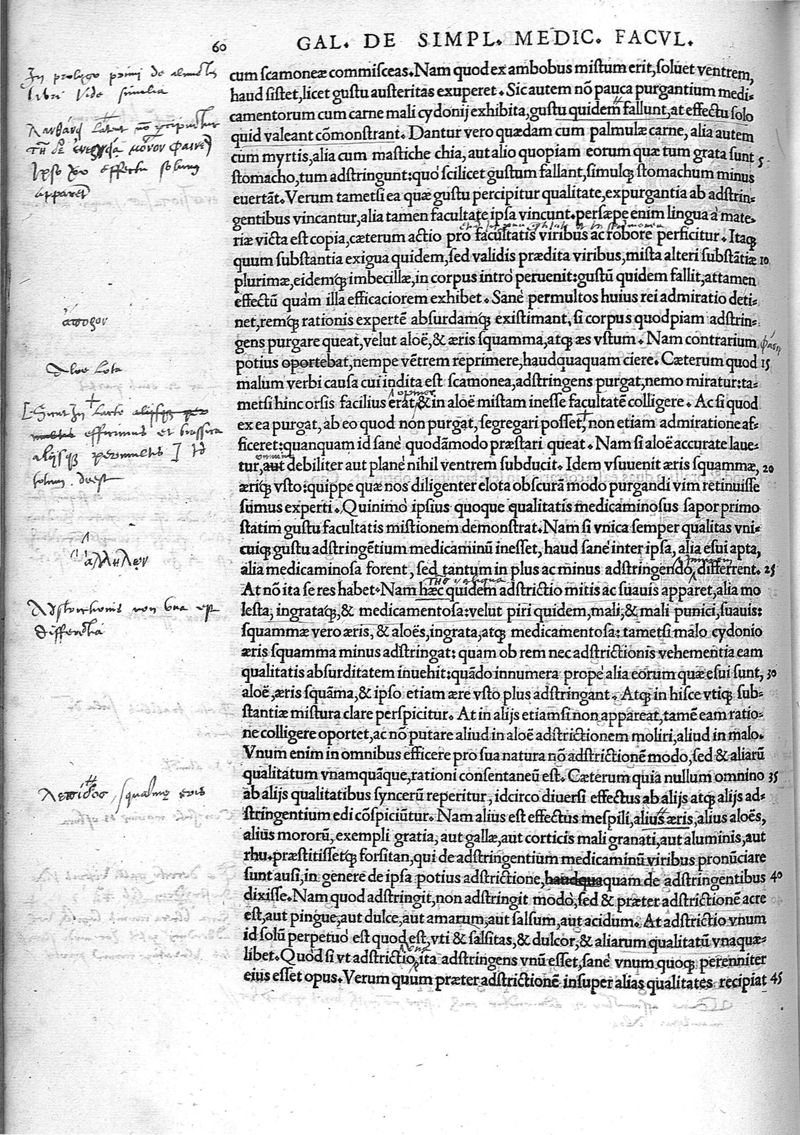 60 GAL. DE SIMPL. MEDIC. FACVL.
cum scamoneæ commisceas. Nam quod ex ambobus mistum erit, soluet ventrem,
haud sistet, licet gustu austeritas exuperet. Sic autem nõ pauca purgantium medi-
camentorum cum carne mali cydonij exhibita, gustu quidem fallunt, at effectu solo
quid valeant cõmonstrant. Dantur vero quædam cum palmulæ carne, alia autem
cum myrtis, alia cum mastiche chia, aut alio quopiam eorum quæ tum grata sunt 5
stomacho, tum adstringunt: quo scilicet gustum fallant, simulq; stomachum minus
euertãt. Verum tametsi ea quæ gustu percipitur qualitate, expurgantia ab adstrin-
gentibus vincantur, alia tamen facultate ipsa vincunt. persæpe enim lingua à mate-
riæ victa est copia, cæterum actio pro facultatis viribus ac robore perficitur. Itaq;
quum substantia exigua quidem, sed validis prædita viribus, mista alteri substãtiæ 10
plurimæ, eidemq; imbecillæ, in corpus intro peruenit: gustũ quidem fallit, attamen
effectũ quàm illa efficaciorem exhibet. Sanè permultos huius rei admiratio deti-
net, remq; rationis expertẽ absurdamq; existimant, si corpus quodpiam adstrin-
gens purgare queat, velut aloë, & æris squamma, atq; æs vstum. Nam contrarium
potius oportebat, nempe vẽtrem reprimere, haudquaquam ciere. Cæterum quod 15
malum verbi causa cui indita est scamonea, adstringens purgat, nemo miratur: ta-
metsi hinc orsis facilius erat, & in aloë mistam inesse facultatẽ colligere. Ac si quod
ex ea purgat, ab eo quod non purgat, segregari posset, non etiam admiratione af-
ficeret: quanquam id sanè quodãmodo præstari queat. Nam si aloë accurate laue-
tur, aut debiliter aut planè nihil ventrem subducit. Idem vsuuenit æris squammæ, 20
ærisq; vsto: quippe quæ nos diligenter elota obscurã modo purgandi vim retinuisse
sumus experti. Quinimo ipsius quoque qualitatis medicaminosus sapor primo
statim gustu facultatis mistionem demonstrat. Nam si vnica semper qualitas vni-
cuiq; gustu adstringẽtium medicaminũ inesset, haud sanè inter ipsa, alia esui apta,
alia medicaminosa forent, sed tantum in plus ac minus adstringendo, differrent. 25
At nõ ita se res habet. Nam hæc quidem adstrictio mitis ac suauis apparet, alia mo
lesta, ingrataq;, & medicamentosa: velut piri quidem, mali, & mali punici, suauis:
squammæ vero æris, & aloës, ingrata, atq; medicamentosa: tametsi malo cydonio
æris squamma minus adstringat: quam ob rem nec adstrictionis vehementia eam
qualitatis absurditatem inuehit: quãdo innumera propè alia eorum quæ esui sunt, 30
aloë, æris squãma, & ipso etiam ære vsto plus adstringant. Atq; in hisce vtiq; sub-
stantiæ mistura clare perspicitur. At in alijs etiamsi non appareat, tamẽ eam ratio-
ne colligere oportet, ac nõ putare aliud in aloë adstrictionem moliri, aliud in malo.
Vnum enim in omnibus efficere pro sua natura nõ adstrictionẽ modo, sed & aliarũ
qualitatum vnamquãque, rationi consentaneũ est. Cæterum quia nullum omnino 35
ab alijs qualitatibus syncerũ reperitur, idcirco diuersi effectus ab alijs atq; alijs ad-
stringentium edi cõspiciũtur. Nam alius est effectus mespili, alius æris, alius aloës,
alius mororũ, exempli gratia, aut gallæ, aut corticis mali granati, aut aluminis, aut
rhu. præstitissetq; forsitan, qui de adstringentium medicaminũ viribus pronũciare
sunt ausi, in genere de ipsa potius adstrictione, haudquaquam de adstringentibus 40
dixisse. Nam quod adstringit, non adstringit modo, sed & præter adstrictionẽ acre
est, aut pingue, aut dulce, aut amarum, aut salsum, aut acidum. At adstrictio vnum
id solũ perpetuò est quod est, vti & salsitas, & dulcor, & aliarum qualitatũ vnaquæ-
libet. Quòd si vt adstrictio, ita adstringens vnũ esset, sanè vnum quoq; perenniter
eius esset opus. Verum quum præter adstrictionẽ insuper alias qualitates recipiat 45
Aloe Lota
ἀλλήλων
Adstrictionis non una est
differentia
λεπίδος, squamæ æris